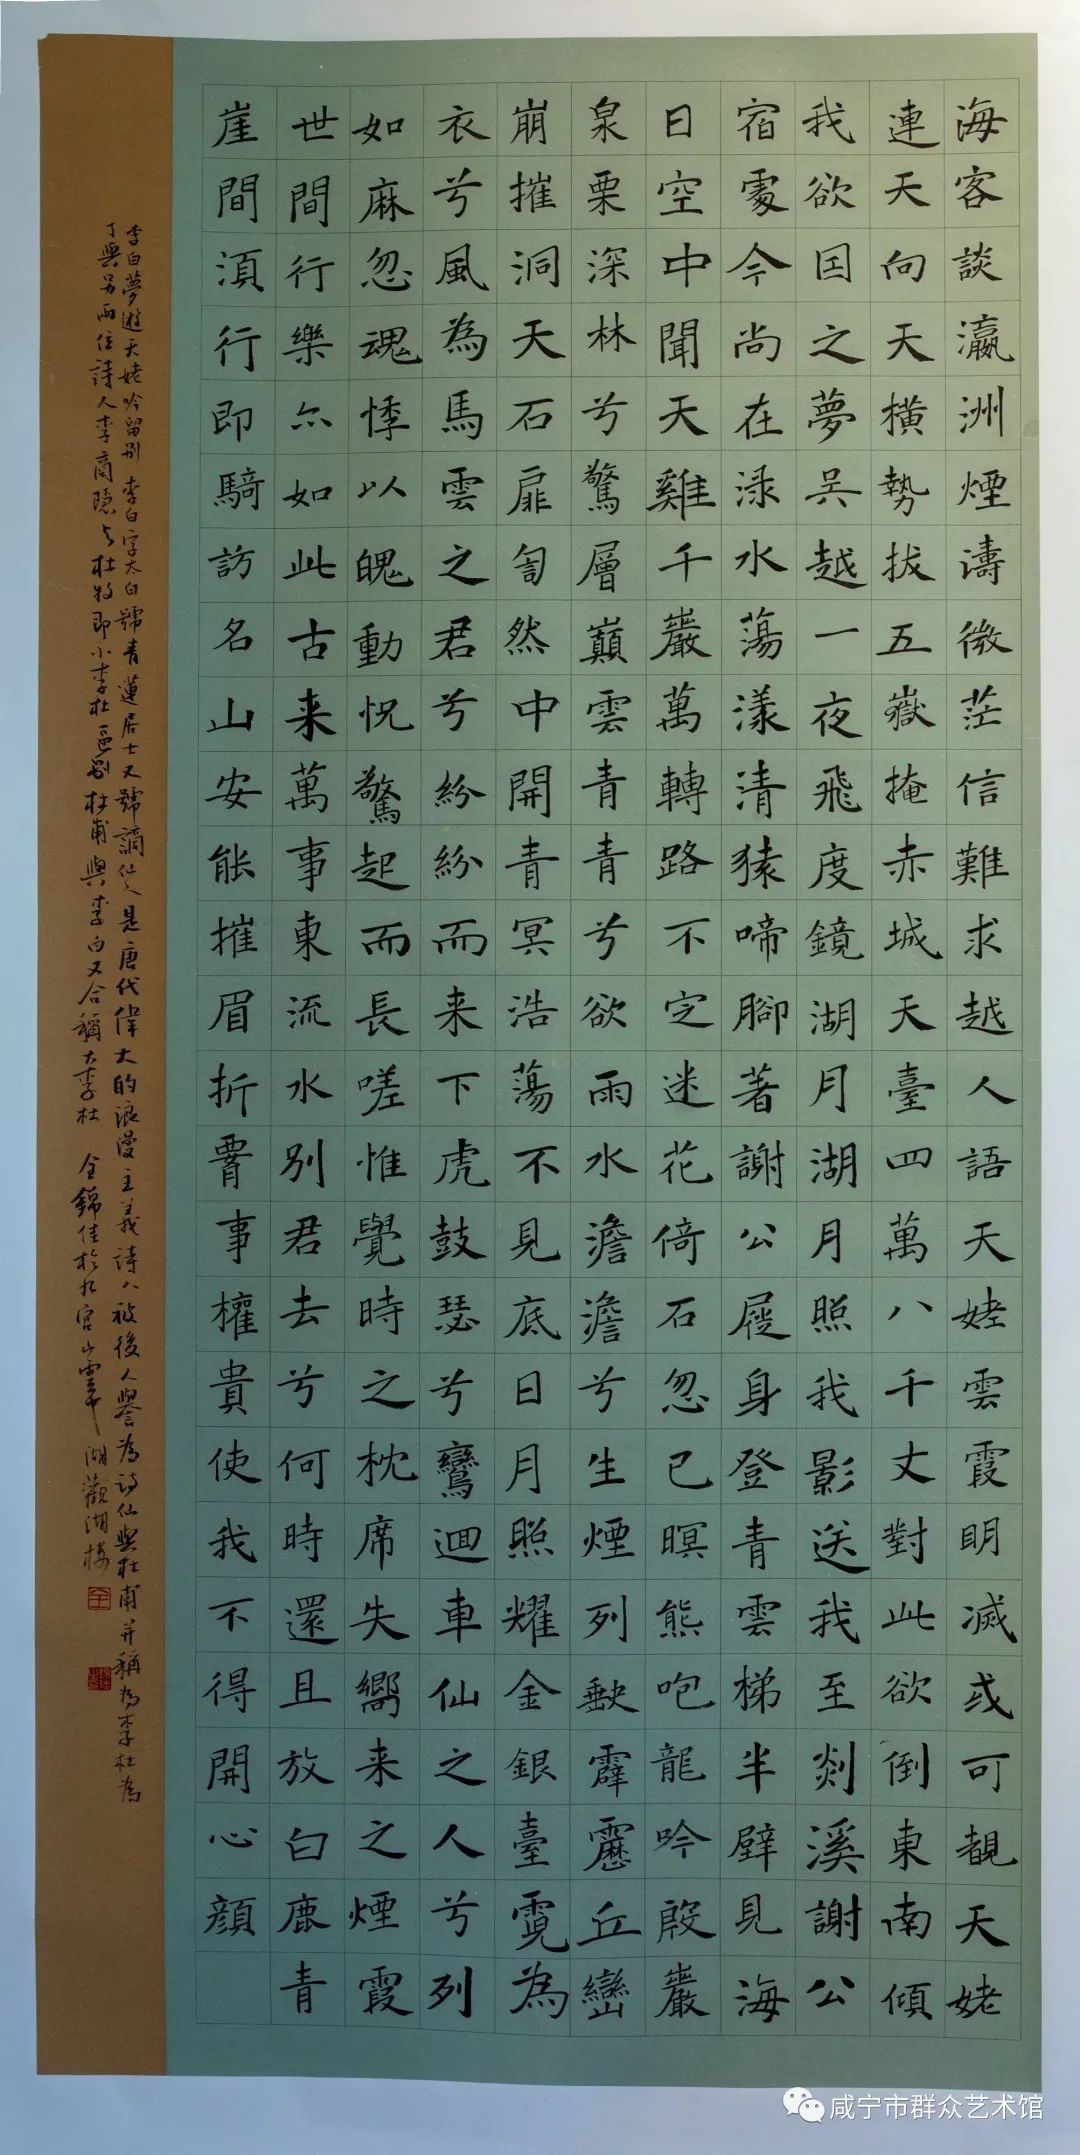 海客談瀛洲煙濤微茫信難求越人語天姥雲霞明滅或可覩天姥
連天向天橫勢拔五嶽掩赤城天臺四萬八千丈對此欲倒東南傾
我欲因之夢吳越一夜飛度鏡湖月湖月照我影送我至剡溪謝公
宿處今尚在淥水蕩漾清猿啼腳著謝公屐身登青雲梯半壁見海
日空中聞天雞千巖萬轉路不定迷花倚石忽已暝熊咆龍吟殷巖
泉栗深林兮驚層巔雲青青兮欲雨水澹澹兮生煙列缺霹靂丘巒
崩摧洞天石扉訇然中開青冥浩蕩不見底日月照耀金銀臺霓為
衣兮風為馬雲之君兮紛紛而来下虎鼓瑟兮鸞迴車仙之人兮列
如麻忽魂悸以魄動怳驚起而長嗟惟覺時之枕席失嚮来之煙霞
世間行樂亦如此古来萬事東流水別君去兮何時還且放白鹿青
崖間須行即騎訪名山安能摧眉折腰事權貴使我不得開心顏
李白夢遊天姥吟留別 李白字太白號青蓮居士又號謫仙人是唐代偉大的浪漫主義詩人被後人譽為詩仙與杜甫并稱為李杜為
了與另兩位詩人李商隱与杜牧即小李杜區別杜甫與李白又合稱大李杜 全錦佳於九宮山雲中湖觀湖樓
咸宁市群众艺术馆